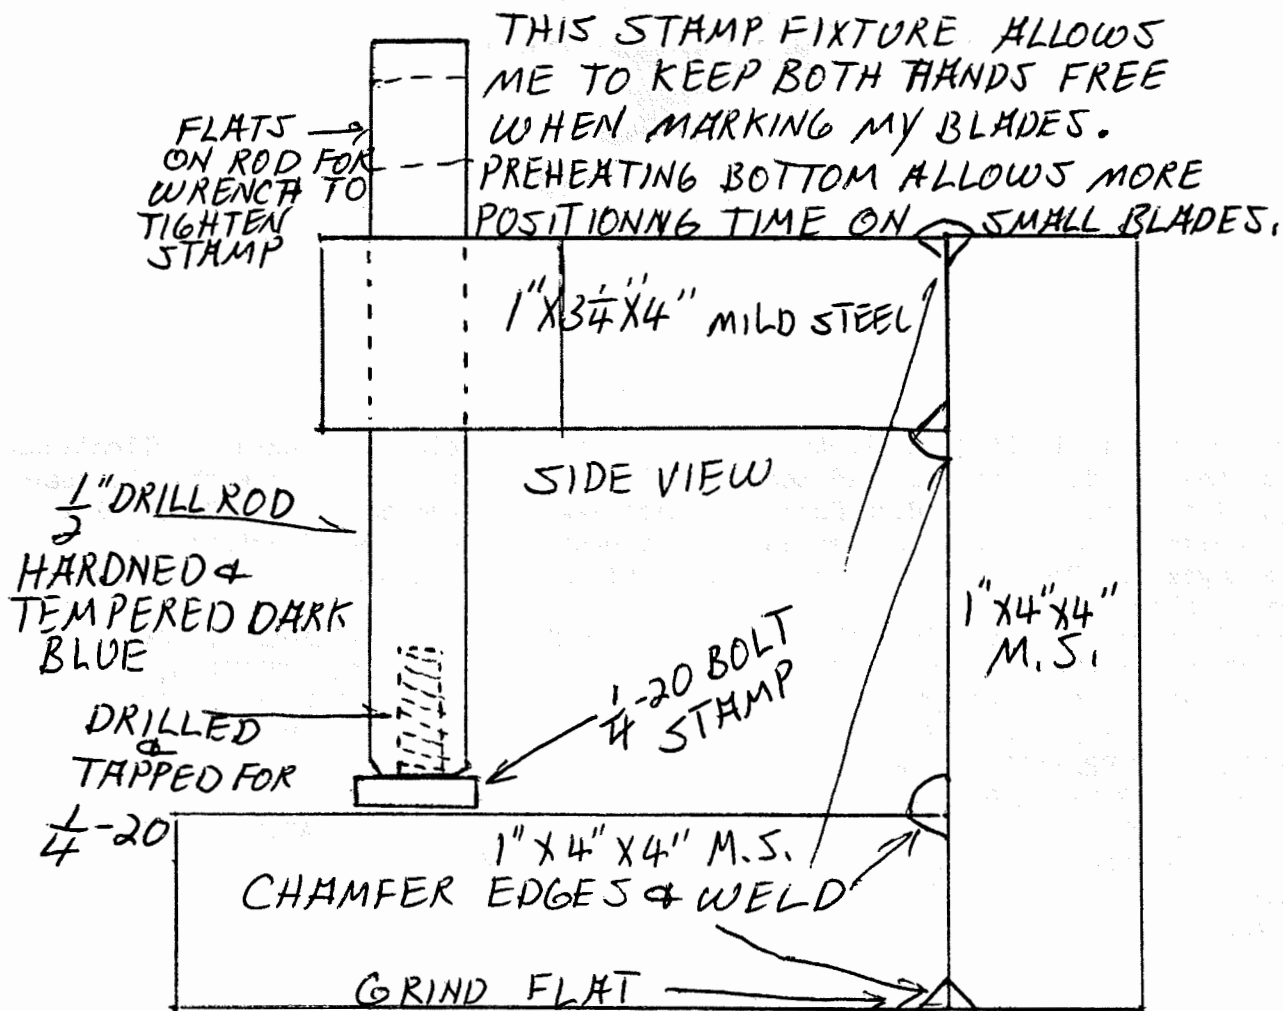 THIS STAMP FIXTURE ALLOWS
ME TO KEEP BOTH HANDS FREE
WHEN MARKING MY BLADES.
PREHEATING BOTTOM ALLOWS MORE
POSITIONNG TIME ON SMALL BLADES.
FLATS
ON ROD FOR
WRENCH TO
TIGHTEN
STAMP
1" X 3 1/4" X 4" MILD STEEL
SIDE VIEW
1/2" DRILL ROD
HARDNED &
TEMPERED DARK
BLUE
1" X 4" X 4"
M.S.
1/4-20 BOLT
STAMP
DRILLED
&
TAPPED FOR
1/4-20
1" X 4" X 4" M.S.
CHAMFER EDGES & WELD
GRIND FLAT